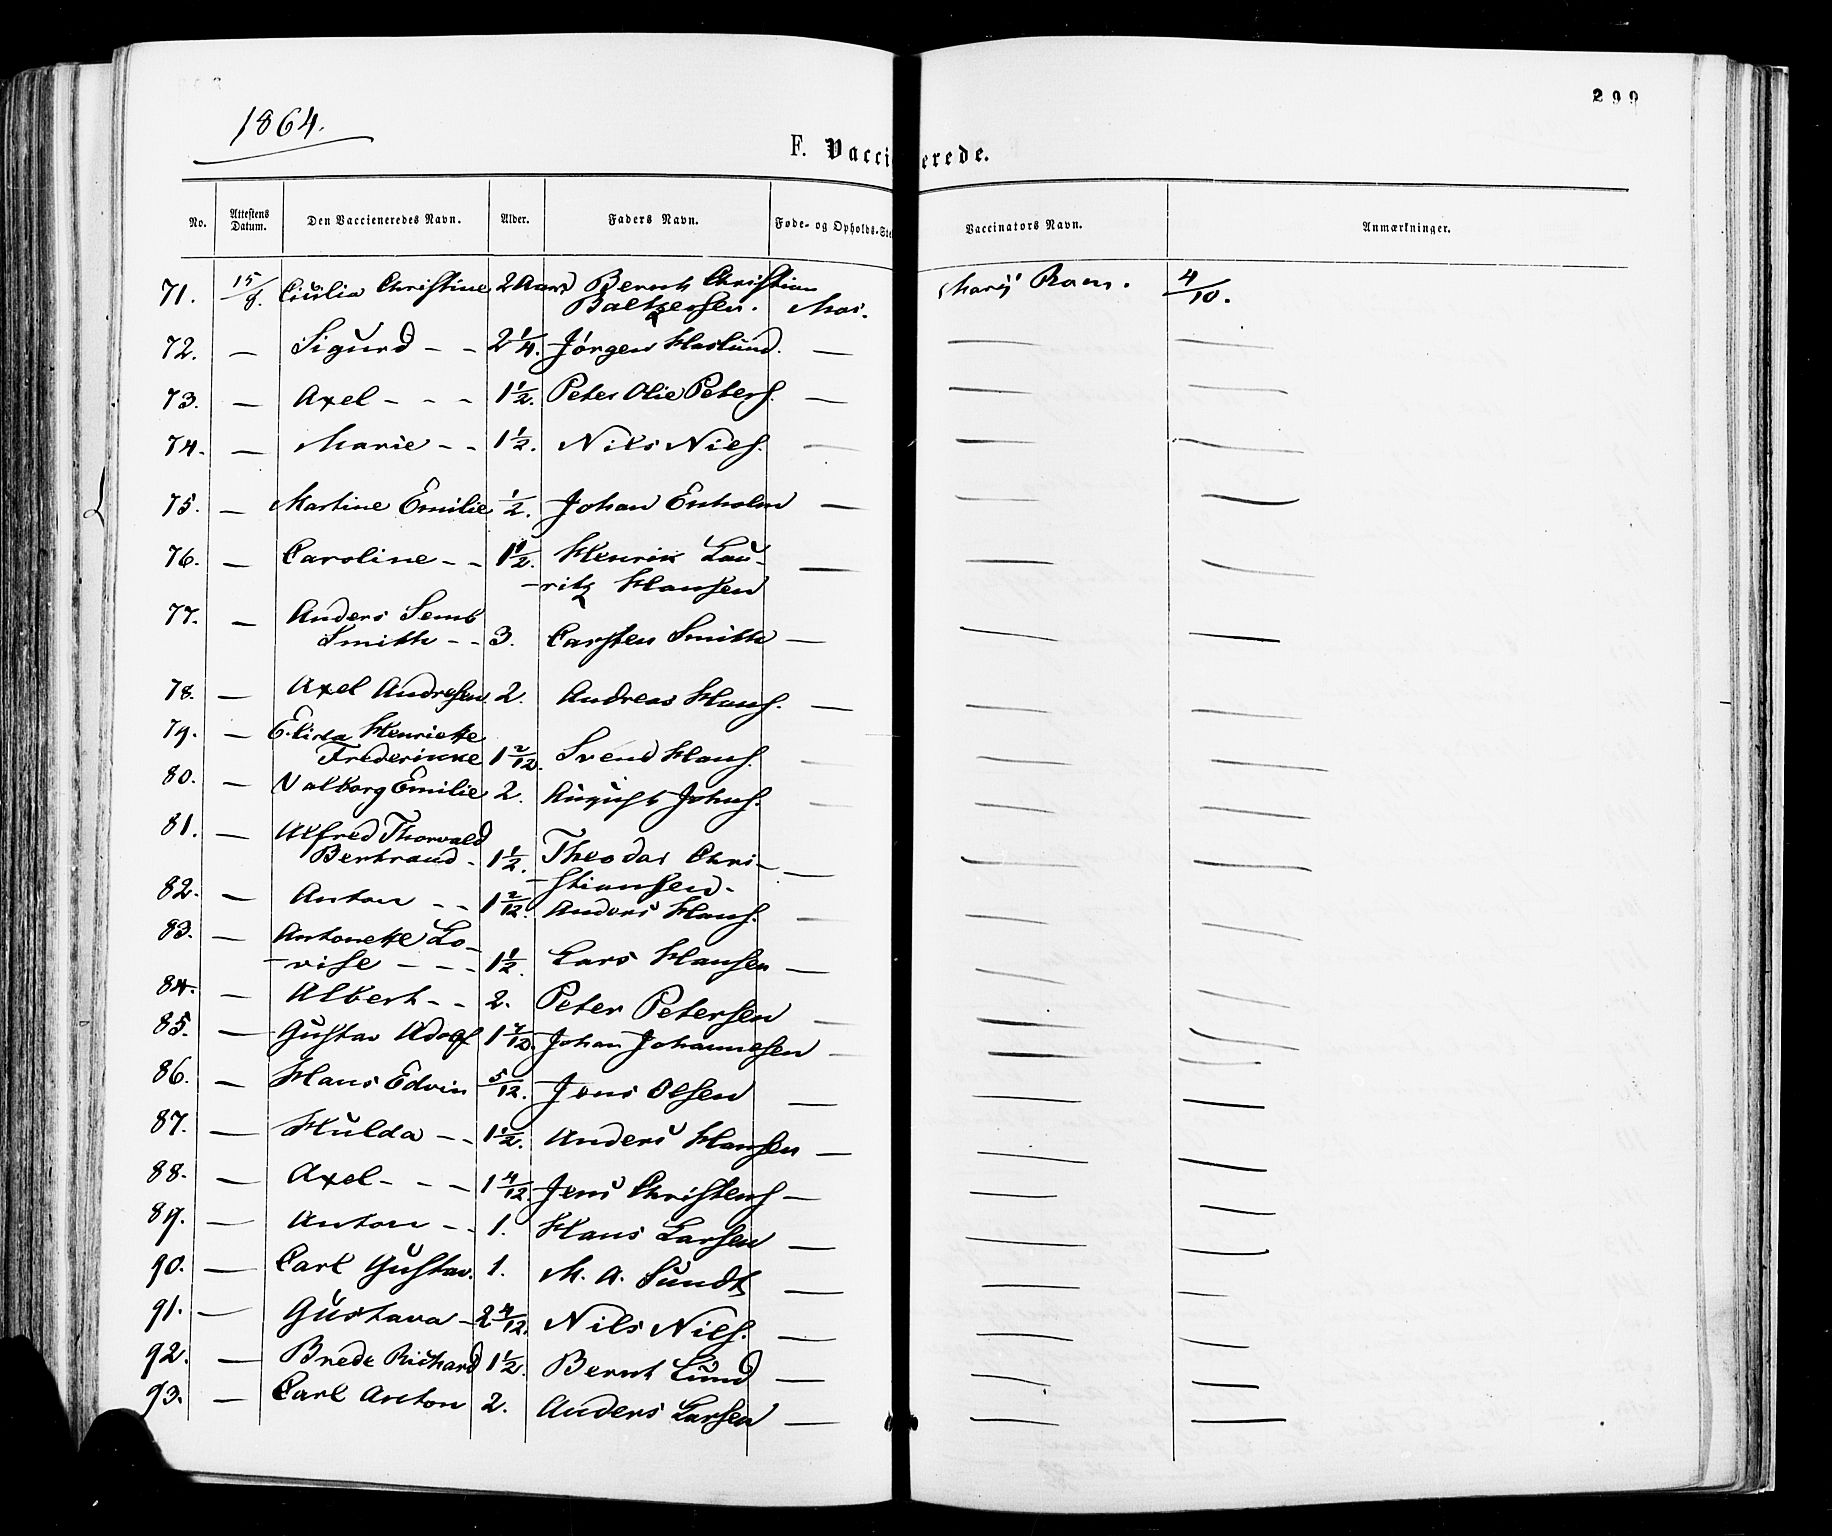 299
1864.
F. Vaccienerede.
No. Attestens Datum. Den Vaccieneredes Navn. Alder. Faders Navn. Føde- og Opholds-Ste Vaccinators Navn. Anmærkninger.
71. 15/9. Christine 2 Aar Bernt Christian Baltzersen. Mos. 4/10.
72. — Sigurd - - 2 1/4. Jørgen Haslund. — — —
73. — Axel - - - 1 1/2. Peter Olie Peters. — — —
74. — Marie - - 1 1/2. Nils Niels. — — —
75. — Martine Emilie 1/2. Johan Enholm — — —
76. — Caroline - - 1 1/2. Henrik Lau-
-ritz Hansen — — —
77. — Anders Semb
Smith - - 3. Carsten Smith — — —
78. — Axel Andresen 2. Andreas Hans. — — —
79. — Elida Henriette
Frederikke 1 2/12. Svend Hans. — — —
80. — Valborg Emilie 2. August Johns. — — —
81. — Alfred Thorvald
Bertrand - 1 1/2. Theodor Chri-
-stiansen. — — —
82. — Anton - - 1 2/12. Anders Hans. — — —
83. — Antonette Lo-
-vise - - - 1 1/2. Lars Hansen — — —
84. — Albert - - 2. Peter Petersen — — —
85. — Gustav Adolf 1 7/12. Johan Johannesen — — —
86. — Hans Edvin 5/12. Jens Olsen — — —
87. — Hulda - - 1 1/2. Anders Hansen — — —
88. — Axel - - - 1 4/12. Jens Christens — — —
89. — Anton - - 1. Hans Larsen — — —
90. — Carl Gustav. 1. M. A. Sundt — — —
91. — Gustava - 2 4/12. Nils Niels. — — —
92. — Brede Richard 1 1/2. Bernt Lund — — —
93. — Carl Anton 2. Anders Larsen — — —